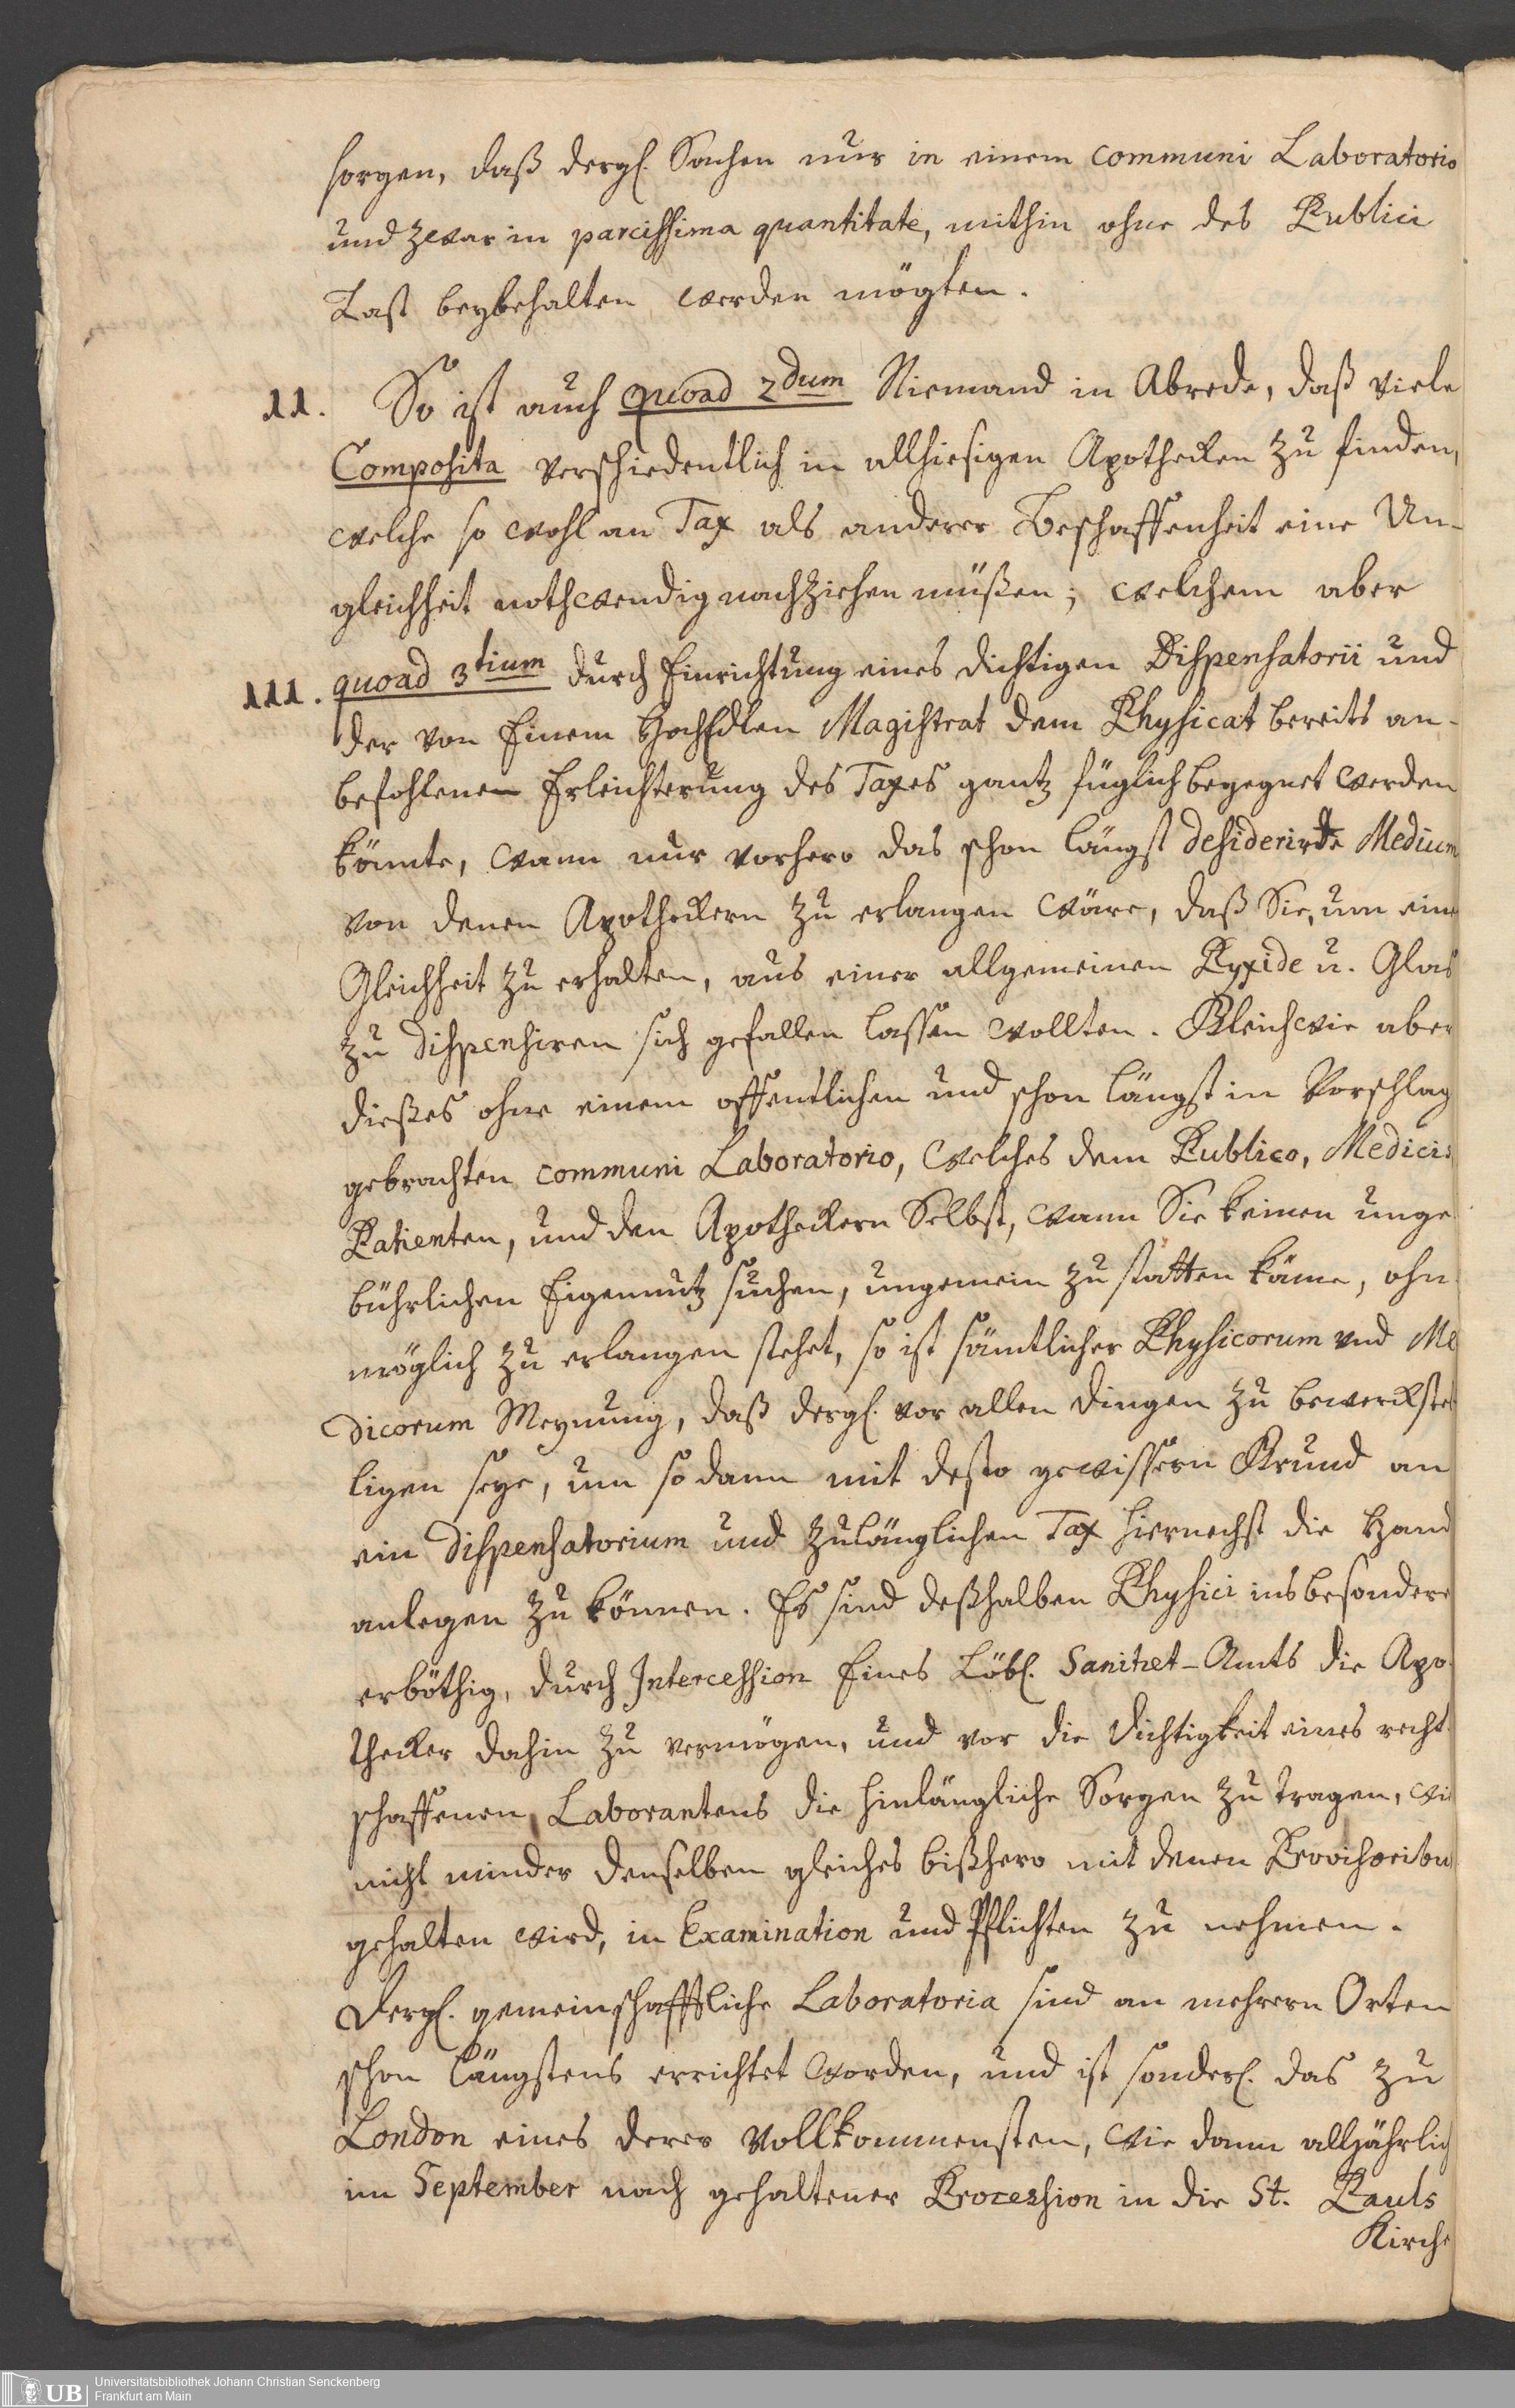 sorgen, daß dergl. Sachen nur in einem communi Laboratorio
und zwar in parcissima quantitate, mithin ohne des Publici
Last beybehalten werden mögten.
II. So ist auch quoad 2dum Niemand in Abrede, daß viele
Composita verschiedentlich in allhiesigen Apothecken zu finden,
welche so wohl an Tax als anderer Beschaffenheit eine Un-
gleichheit nothwendig nachziehen müßen; welchem aber
III. quoad 3tium durch Einrichtung eines dichtigen Dispensatorii und
der von Einem HochEdlen Magistrat dem Physicat bereits an-
befohlenen Erleichterung des Taxes gantz füglich begegnet werden
könnte, wann nur vorhero das schon längst desiderirte Medium
von denen Apotheckern zu erlangen wäre, daß Sie, um eine
Gleichheit zu erhalten, aus einer allgemeinen Pyxide u. Glas
zu dispensiren sich gefallen lassen wollten. Gleichwie aber
dießes ohne einem offentlichen und schon längst in Vorschlag
gebrachten communi Laboratorio, welches dem Publico, Medicis
Patienten, und den Apotheckern Selbst, wann Sie keinen unge
bührlichen Eigennutz suchen, ungemein zu statten käme, ohn
möglich zu erlangen stehet, so ist sämtlicher Physicorum und Me
dicorum Meynung, daß dergl. vor allen dingen zu bewerckstel
ligen seye, um so dann mit desto gewissern Grund an
ein Dispensatorium und zulänglichen Tax hiernechst die Hand
anlegen zu können. Es sind deßhalben Physici insbesondere
erböthig, durch Intercession Eines Löbl. Sanitæt-Amts die Apo
thecker dahin zu vermögen, und vor die dichtigkeit eines recht
schaffenen Laborantens die hinlängliche Sorgen zu tragen, wie
nicht minder denselben gleiches bißhero mit denen Provisoribus
gehalten wird, in Examination und Pflichten zu nehmen.
Dergl. gemeinschafftliche Laboratoria sind an mehrern Orten
schon längstens errichtet worden, und ist sonderl. das zu
London eines derer vollkommensten, wie dann alljährlich
im September nach gehaltener Procession in die St. Pauls
Kirche
UB Universitätsbibliothek Johann Christian Senckenberg
Frankfurt am Main